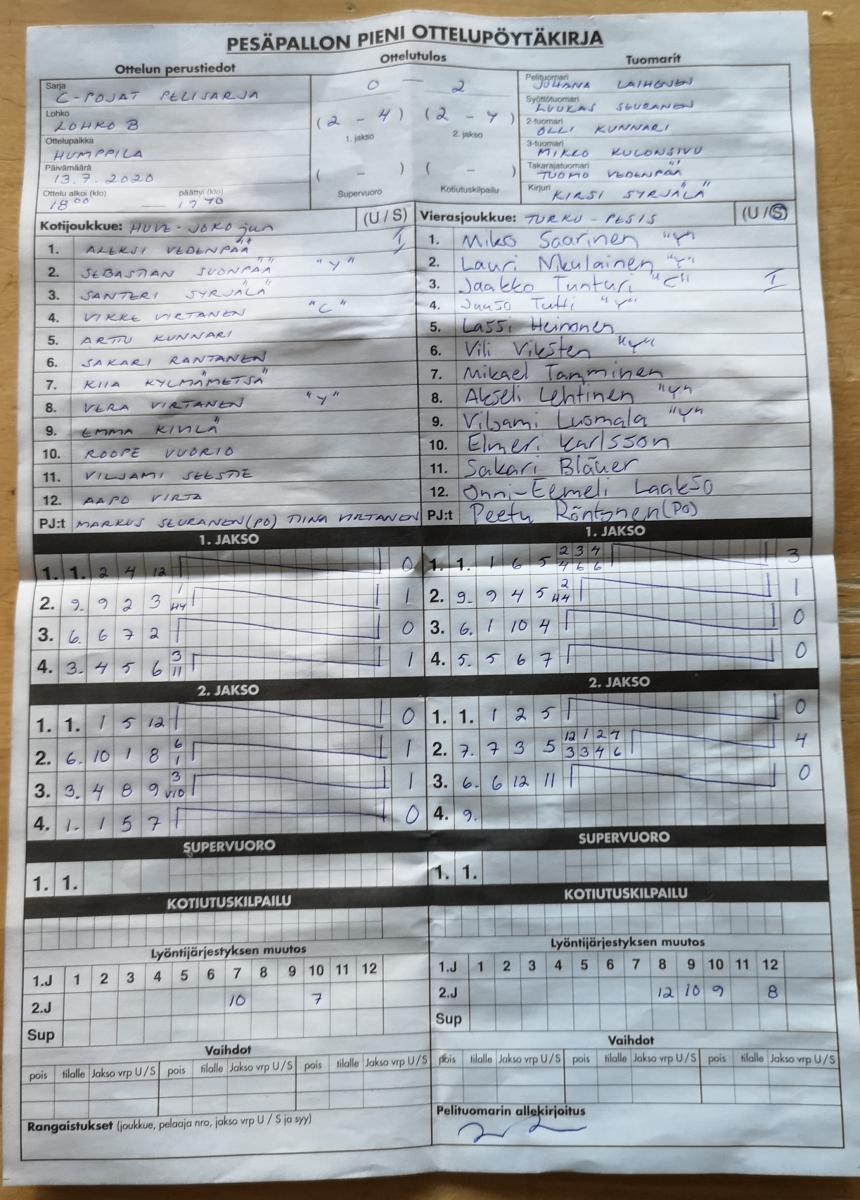 PESÄPALLON PIENI OTTELUPÖYTÄKIRJA
Ottelun perustiedot
Ottelutulos
Tuomarit
Sarja C-POJAT PELISARJA
Lohko LOHKO B
Ottelupaikka HUMPPILA
Päivämäärä 13.7.2020
Ottelu alkoi (klo) päättyi (klo)
18 00 —
0 — 2
(2 - 4) (2 - 4)
1. jakso 2. jakso
( - ) ( - )
Supervuoro Kotiutuskilpailu
Pelituomari JUHANA LAIHONEN
Syöttötuomari LUUKAS SEURANEN
2-tuomari OLLI KUNNARI
3-tuomari MIKKO KULONSIVU
Takarajatuomari TUOMO VEDENPÄÄ
Kirjuri KIRSI SYRJÄLÄ
Kotijoukkue: HUVE-JOKO jun (U / S)
1. ALEKSI VEDENPÄÄ I
2. SEBASTIAN SUONPÄÄ "Y"
3. SANTERI SYRJÄLÄ
4. VIKKE VIRTANEN "C"
5. ARTTU KUNNARI
6. SAKARI RANTANEN
7. KIIA KYLMÄMETSÄ
8. VERA VIRTANEN "Y"
9. EMMA KIVILÄ
10. ROOPE VUORIO
11. VILJAMI SEESTIE
12. AAPO VIRTA
PJ:t MARKUS SEURANEN (PO) TIINA VIRTANEN
Vierasjoukkue: TURKU-PESIS (U / S)
1. Miko Saarinen "Y"
2. Lauri Nikulainen "Y"
3. Jaakko Tunturi "C" I
4. Juuso Tutti "Y"
5. Lassi Heinonen
6. Vili Viksten "Y"
7. Mikael Tamminen
8. Akseli Lehtinen "Y"
9. Viljami Luomala "Y"
10. Elmeri Karlsson
11. Sakari Bläuer
12. Onni-Eemeli Laakso
PJ:t Peetu Röntynen (PO)
1. JAKSO
1. 1. 2 4 12 0
2. 9. 9 2 3 1
3. 6. 6 7 2 0
4. 3. 4 5 6 3 11 1
1. JAKSO
1. 1. 1 6 5 2 3 4 4 6 6 3
2. 9. 9 4 5 2 1
3. 6. 1 10 4 0
4. 5. 5 6 7 0
2. JAKSO
1. 1. 1 5 12 0
2. 6. 10 1 8 6 1 1
3. 3. 4 8 9 3 1
4. 1. 1 5 7 0
2. JAKSO
1. 1. 1 2 5 0
2. 7. 7 3 5 12 1 2 7 3 3 4 6 4
3. 6. 6 12 11 0
4. 9.
SUPERVUORO
1. 1.
SUPERVUORO
1. 1.
KOTIUTUSKILPAILU
KOTIUTUSKILPAILU
Lyöntijärjestyksen muutos
1.J 1 2 3 4 5 6 7 8 9 10 11 12
2.J 10 7
Sup
Lyöntijärjestyksen muutos
1.J 1 2 3 4 5 6 7 8 9 10 11 12
2.J 12 10 9 8
Sup
Vaihdot
pois tilalle Jakso vrp U / S pois tilalle Jakso vrp U / S pois tilalle Jakso vrp U / S
Vaihdot
pois tilalle Jakso vrp U / S pois tilalle Jakso vrp U / S pois tilalle Jakso vrp U / S
Rangaistukset (joukkue, pelaaja nro, jakso vrp U / S ja syy)
Pelituomarin allekirjoitus